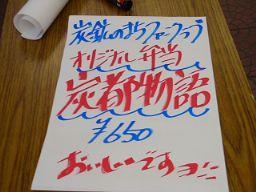 炭鉱のまちファンクラブ
オリジナル弁当
炭都物語
¥650
おいしいですョ